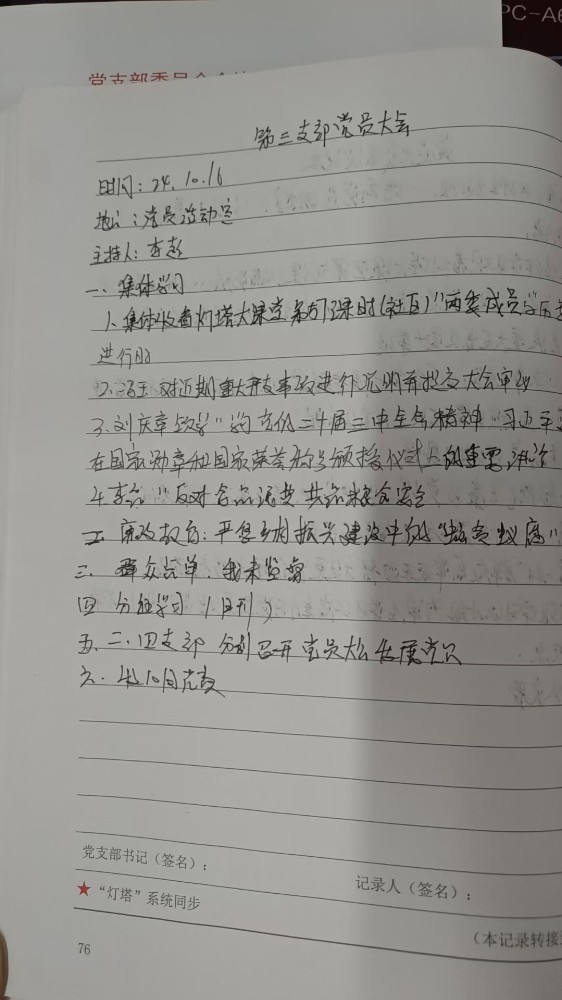 PC-A6
党支部委员会
第三支部党员大会
时间：24.10.16
地点：党员活动室
主持人：李彭
一、集体学习
1、集体收看灯塔大课堂第 课时(社区)"两委成员
进行时
2、 对近期重大开支事项进行说明并提交大会审议
3、刘庆章领学"学习贯彻二十届三中全会精神""习近平
在国家勋章和国家荣誉称号颁授仪式上的重要讲话
4. "反对食品浪费 共 粮食安全
二 廉政教育：严惩乡村振兴建设中的"蝇贪蚁腐"
三、群众点单：我来宣讲
四 分组学习（ ）
五、二、四支部 分别召开党员大会发展党员
六、收10月党费
党支部书记（签名）：
记录人（签名）：
★ "灯塔"系统同步
（本记录转接
76